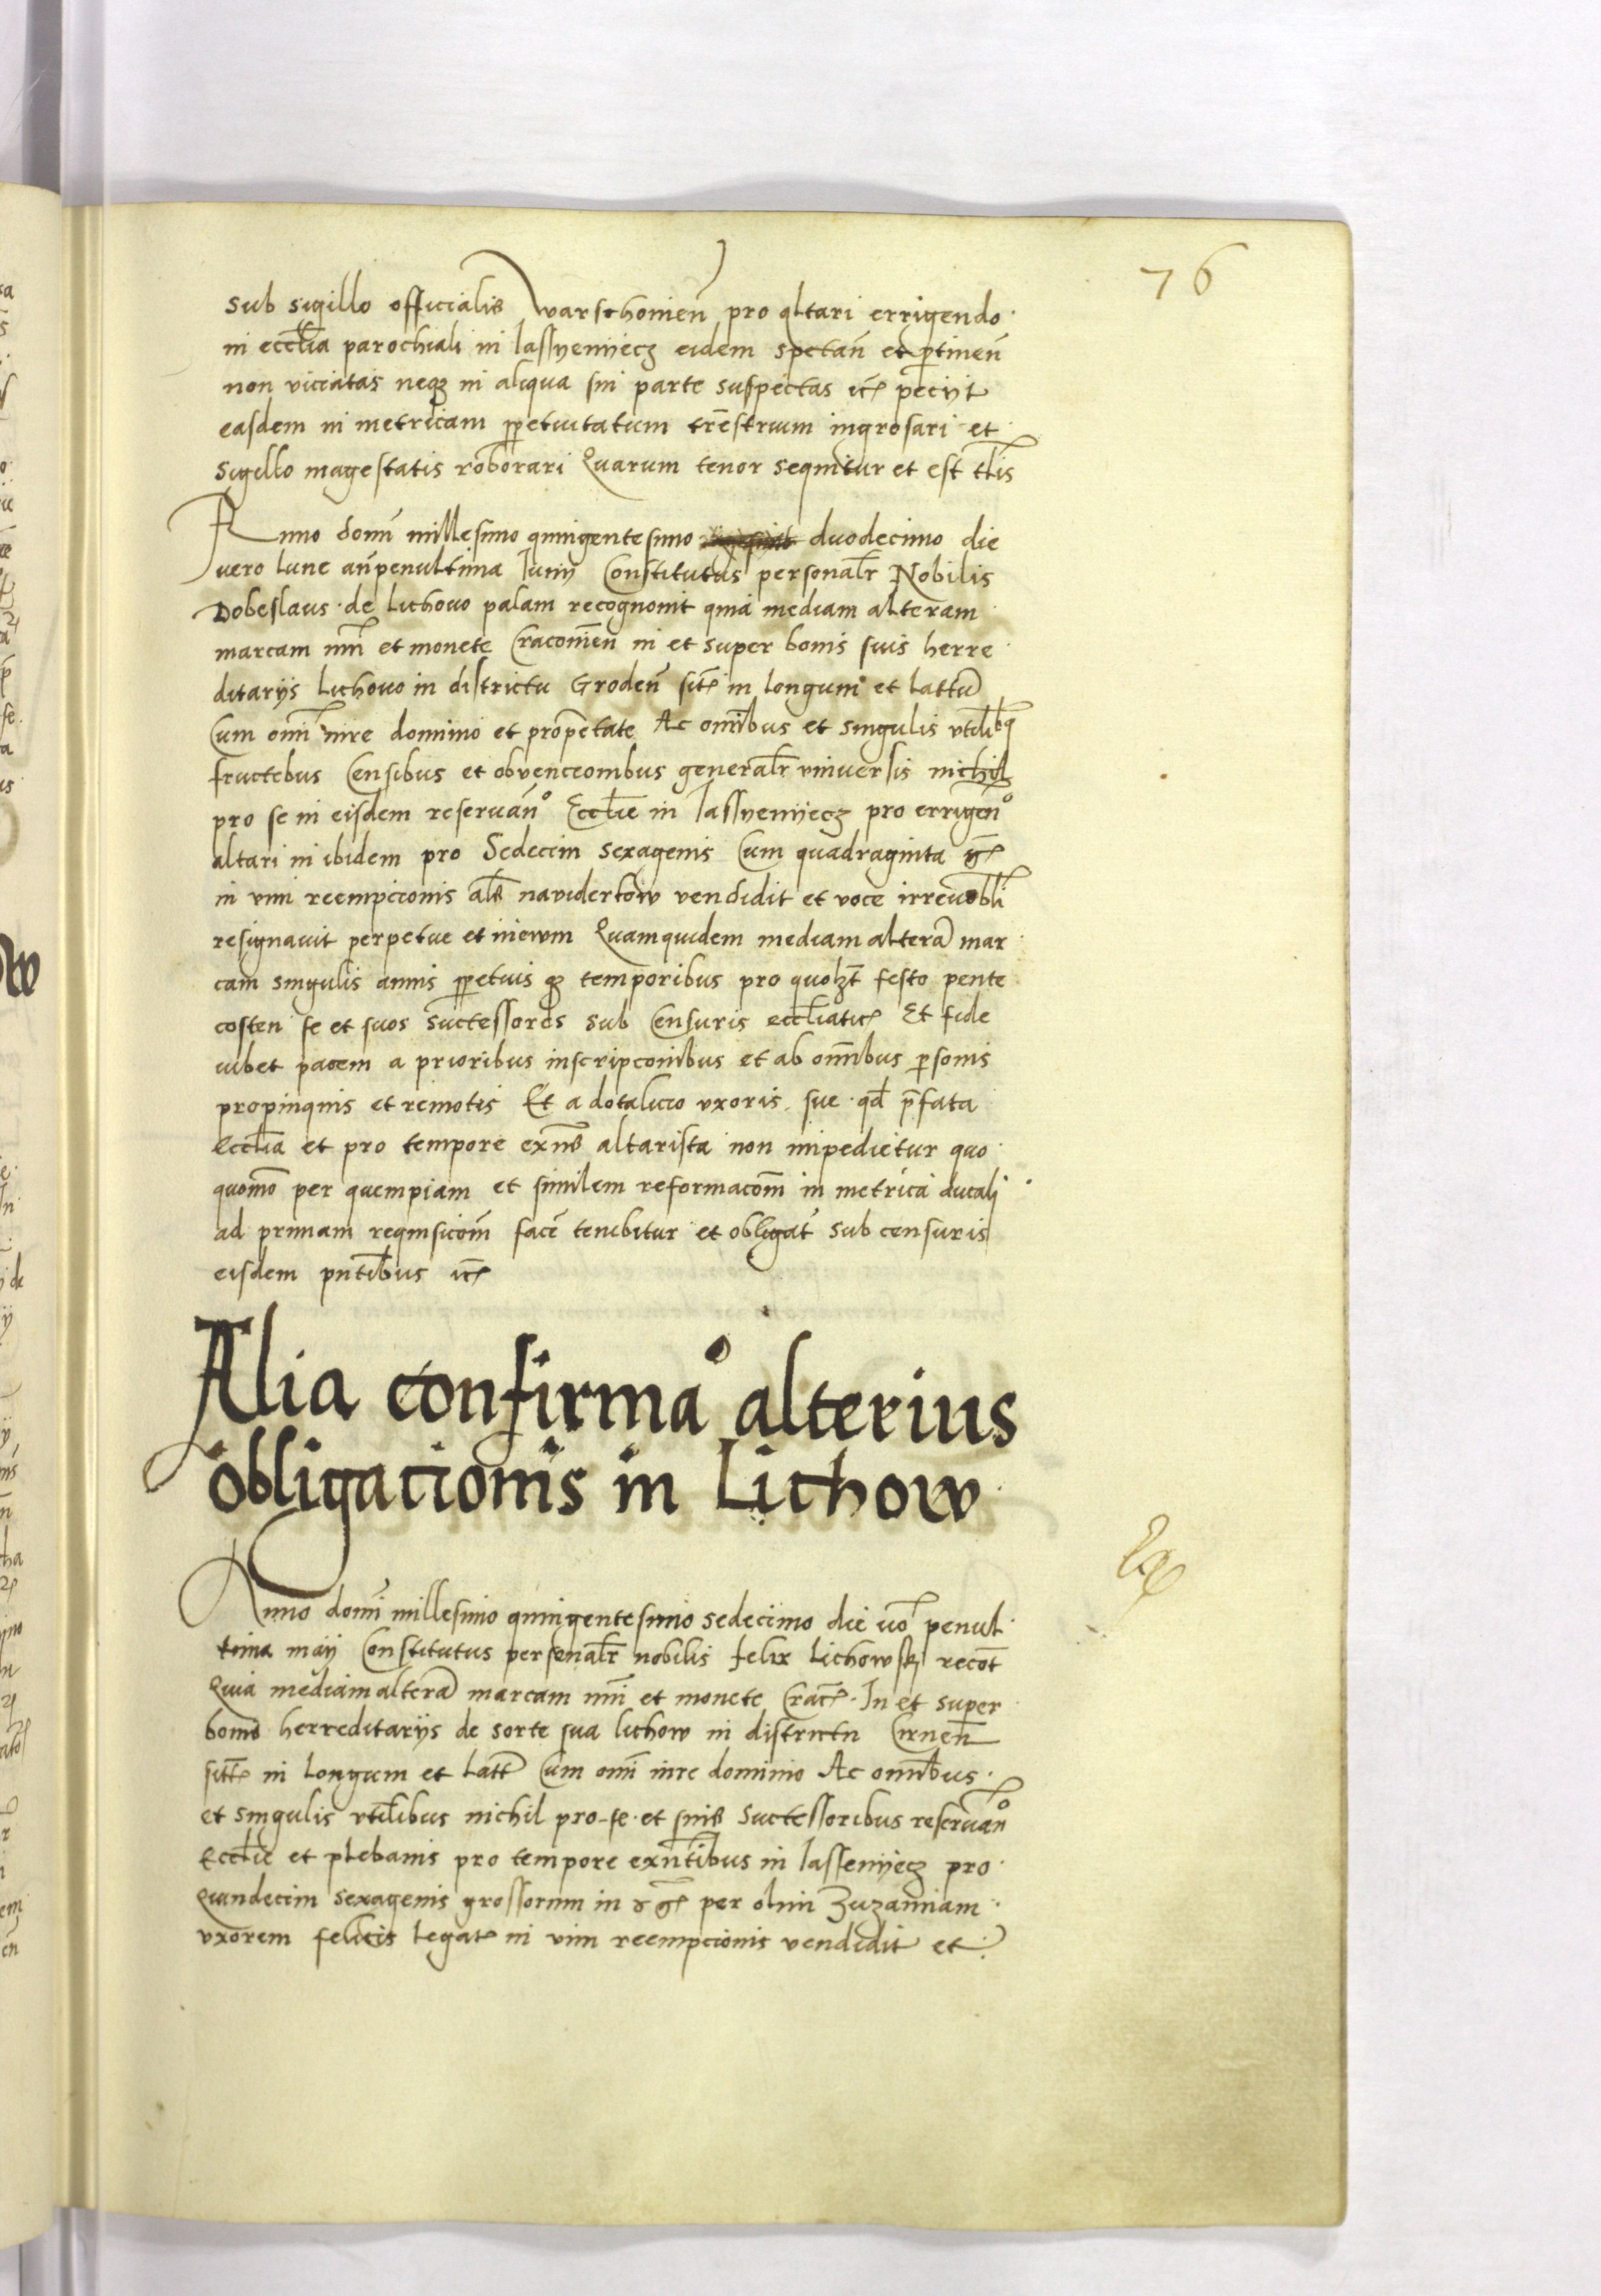 76
sub sigillo officialis warschonień pro altari errigendo
in eccłia parochiali in lassyenyecz eidem spectań et ꝑtineń
non viciatas neqꝫ in aliqua sui parte suspectas ič peciit
easdem in metricam ꝑpetuitatum trēstrium ingrosari et
sigillo magestatis roborari Quarum tenor sequitur et est tlis
Anno domī millesimo quingentesimo duodecimo die
vero lune añpenultima Iunij Constitutus personalr Nobilis
Dobeslaus de Lichowo palam recognouit quia mediam alteram
marcam nūi et monete Cracouień in et super bonis suis herre
ditarijs Lichowo in districtu Grodeń sit in longum et lattū
Cum omi iure dominio et propetate Ac omībus et singulis vtilibq
fructebus Censibus et obvencionibus generalr vniuersis nichil
pro se in eisdem reseruañº Eccłie in lassyenyecz pro errigenº
altari in ibidem pro Sedecim sexagenis Cum quadraginta gr
in vim reempcionis als naviderkow vendidit et voce irreuobli
resignauit perpetue et in ewm Quamquidem mediam alterā mar
cam singulis annis ꝑpetuis qꝫ temporibus pro quolꝫt festo pente
costen se et suos successores sub Censuris eccliatic Et fide
iubet pacem a prioribus inscripconibus et ab omībus ꝑsonis
propinquis et remotis Et a dotalicio vxoris sue qd p̄fata
Eccłia et pro tempore exñs altarista non impedietur quo
quomō per quempiam et similem reformacōm in metrica ducali
ad primam requisicōm facē tenebitur et obligat̄ sub censuris
eisdem pn̄tibus ič
Alia confirmaº alterius
obligacionis in Lichow
Anno domī millesimo quingentesimo sedecimo die uō penul
tima maij Constitutus personalr nobilis felix Lichowskj recōt
Quia mediam alterā marcam nūi et monete Crac In et super
bonis herreditarijs de sorte sua lichow in districtu Cirneń
sitt in longum et latt Cum omī iure dominio Ac omībus
et singulis vtilibus nichil pro se et suis successoribus reseruañº
Eccłie et plebanis pro tempore exn̄tibus in lassenyecz pro
Quindecim sexagenis grossorum in gr per olim Zuzannam
vxorem felicis legat in vim reempcionis vendidit et